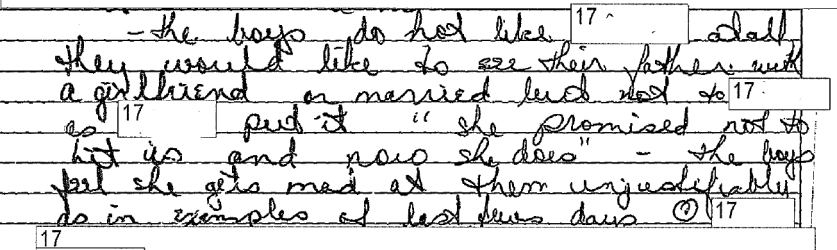 - the boys do not like 17 atall
they would like to see their father with
a girlfriend or married but not to 17
as 17 put it " she promised not to
hit us and now she does" - the boys
feel she gets mad at them unjustifiably
as in examples of last few days 17
17